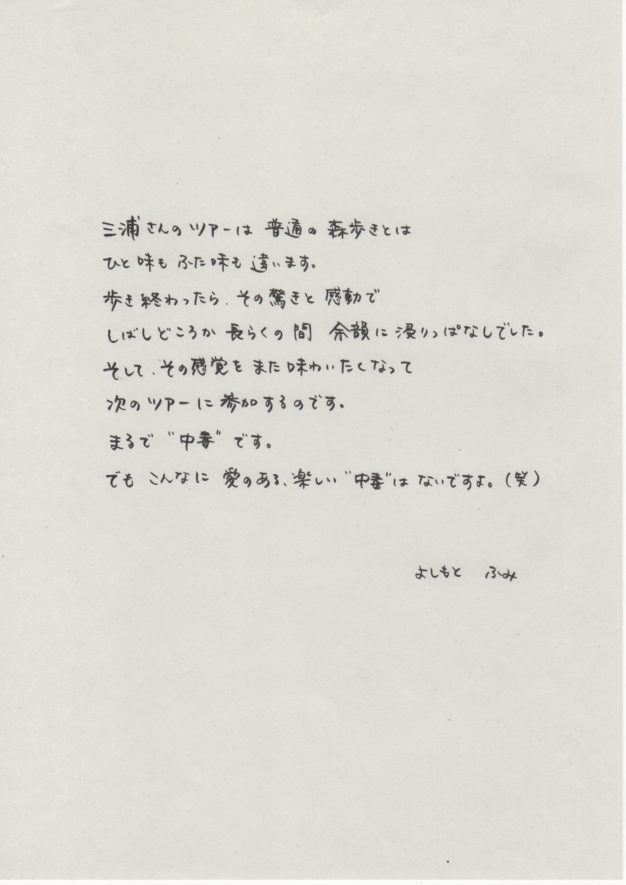 三浦さんのツアーは 普通の 森歩きとは
ひと味も ふた味も 違います。
歩き終わったら、その驚きと 感動で
しばしどころか 長らくの間 余韻に浸りっぱなしでした。
そして、その感覚を また味わいたくなって
次のツアーに 参加するのです。
まるで “中毒” です。
でも こんなに 愛のある、楽しい “中毒” は ないですよ。(笑)
よしもと ふみ